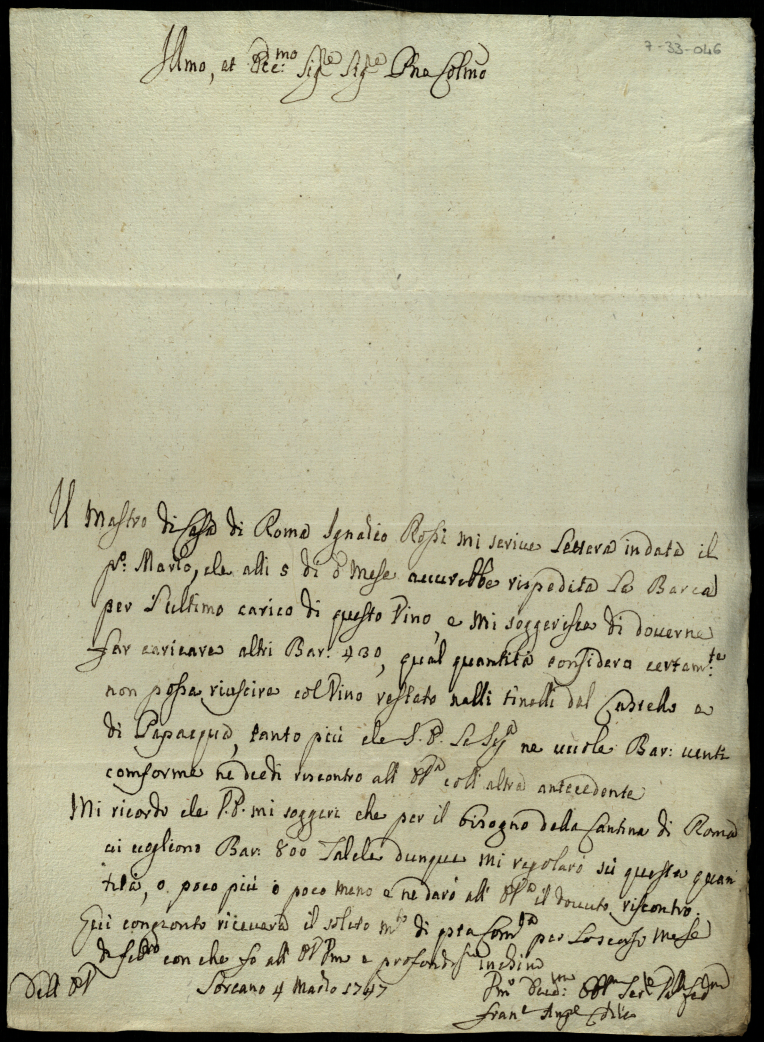 7-33-046
Illmo, et Ecc:mo Sigre Sigre Pne Colmo
Il Mastro di Casa di Roma Ignazio Rossi mi scrive Lettera in data il
po: Marzo, che alli 5 di do Mese averebbe rispedita La Barca
per L'ultimo carico di questo Vino, e Mi soggerisce di doverne
far caricare altri Bar: 430, qual quantità considero certam:te
non possa riuscire col Vino restato nelli tinelli del Castello e
di Papacqua, tanto più che S. E. La Siga ne vuole Bar: venti
comforme ne diedi riscontro all' EVa coll' altra antecedente
Mi ricordo che V.E. mi soggerì che per il bisogno della Cantina di Roma
ci vogliono Bar: 800 Talche dunque mi regolarò sù questa quan
tità, o poco più ò poco meno e ne darò all' EVa il dovuto riscontro.
Qui congionto riceverà il solito mto di pta Comtà per Lo scorso Mese
di febro con che fo all' EV Pma e profondisma inchino
Dell' EV
Soreano 4 Marzo 1747
Servre
Franco Ango